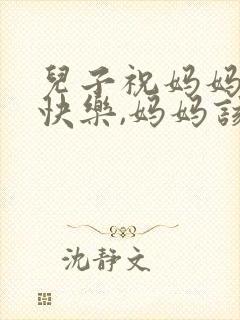 兒子祝媽媽
快樂,媽媽該
沈靜文